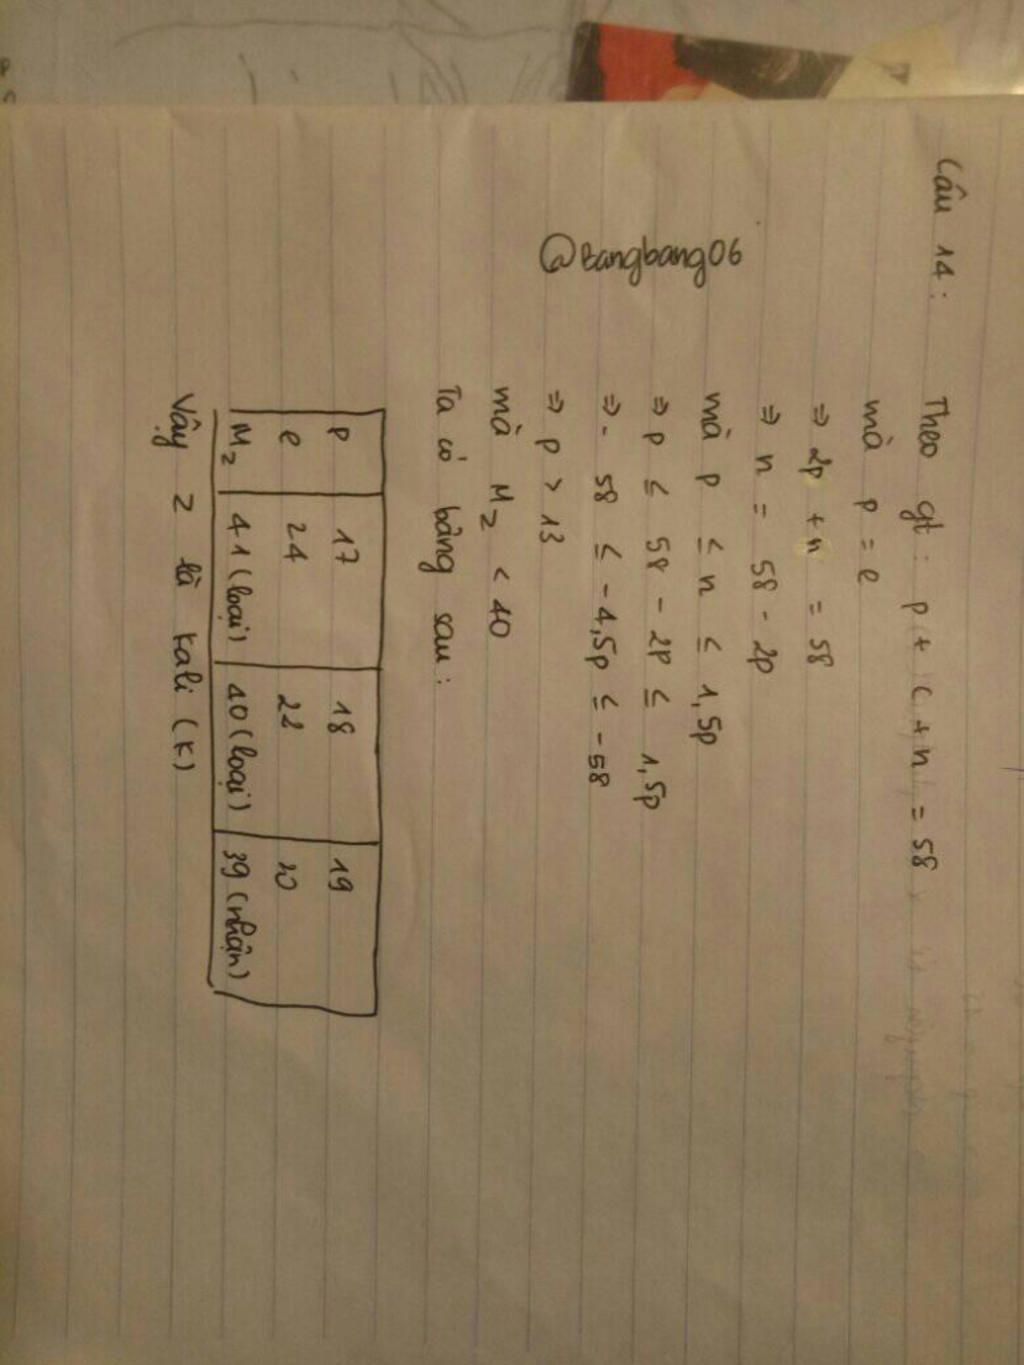 Câu 14: Theo gt: p + e + n = 58
mà p = e
⇒ 2p + n = 58
⇒ n = 58 - 2p
@Bangbang06
mà p ≤ n ≤ 1,5p
⇒ p ≤ 58 - 2p ≤ 1,5p
⇒ - 58 ≤ -4,5p ≤ -58
⇒ p > 13
mà Mz < 40
Ta có bảng sau:
p 17 18 19
e 24 22 20
Mz 41 (loại) 40 (loại) 39 (nhận)
Vậy Z là Kali (K)